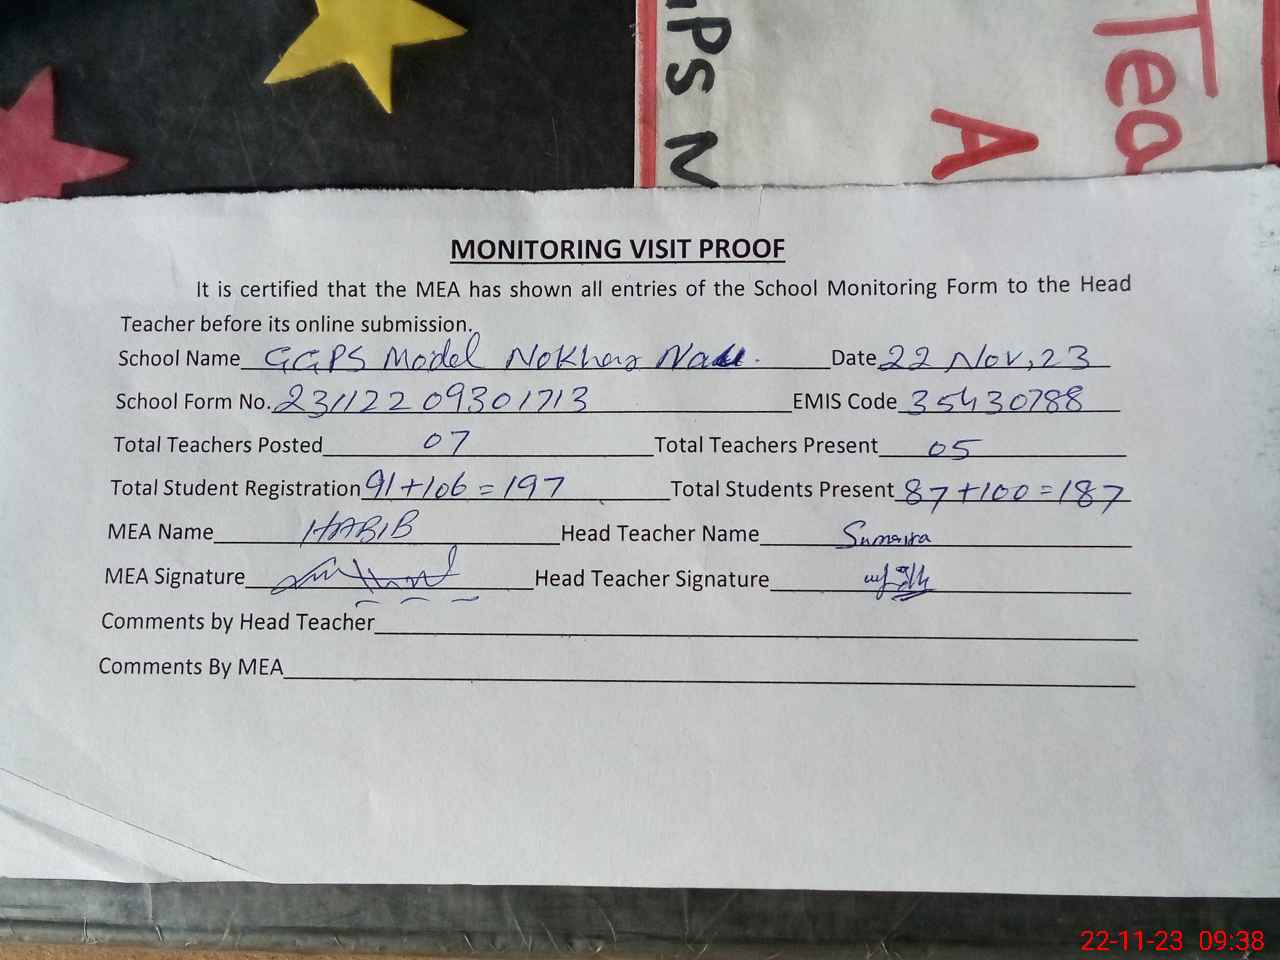 GPS M
Tea
A
MONITORING VISIT PROOF
It is certified that the MEA has shown all entries of the School Monitoring Form to the Head
Teacher before its online submission.
School Name GGPS Model Nokhar Date 22 Nov, 23
School Form No. 23112209301713 EMIS Code 35430788
Total Teachers Posted 07 Total Teachers Present 05
Total Student Registration 91+106=197 Total Students Present 87+100=187
MEA Name HABIB Head Teacher Name Sumaira
MEA Signature Head Teacher Signature
Comments by Head Teacher
Comments By MEA
22-11-23 09:38